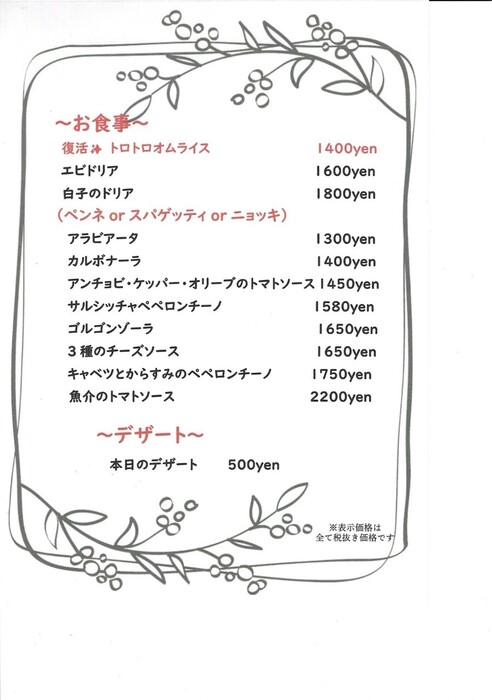 ～お食事～
復活✨ トロトロオムライス 1400yen
エビドリア 1600yen
白子のドリア 1800yen
（ペンネ or スパゲッティ or ニョッキ）
アラビアータ 1300yen
カルボナーラ 1400yen
アンチョビ・ケッパー・オリーブのトマトソース 1450yen
サルシッチャペペロンチーノ 1580yen
ゴルゴンゾーラ 1650yen
３種のチーズソース 1650yen
キャベツとからすみのペペロンチーノ 1750yen
魚介のトマトソース 2200yen
～デザート～
本日のデザート 500yen
※表示価格は
全て税抜き価格です